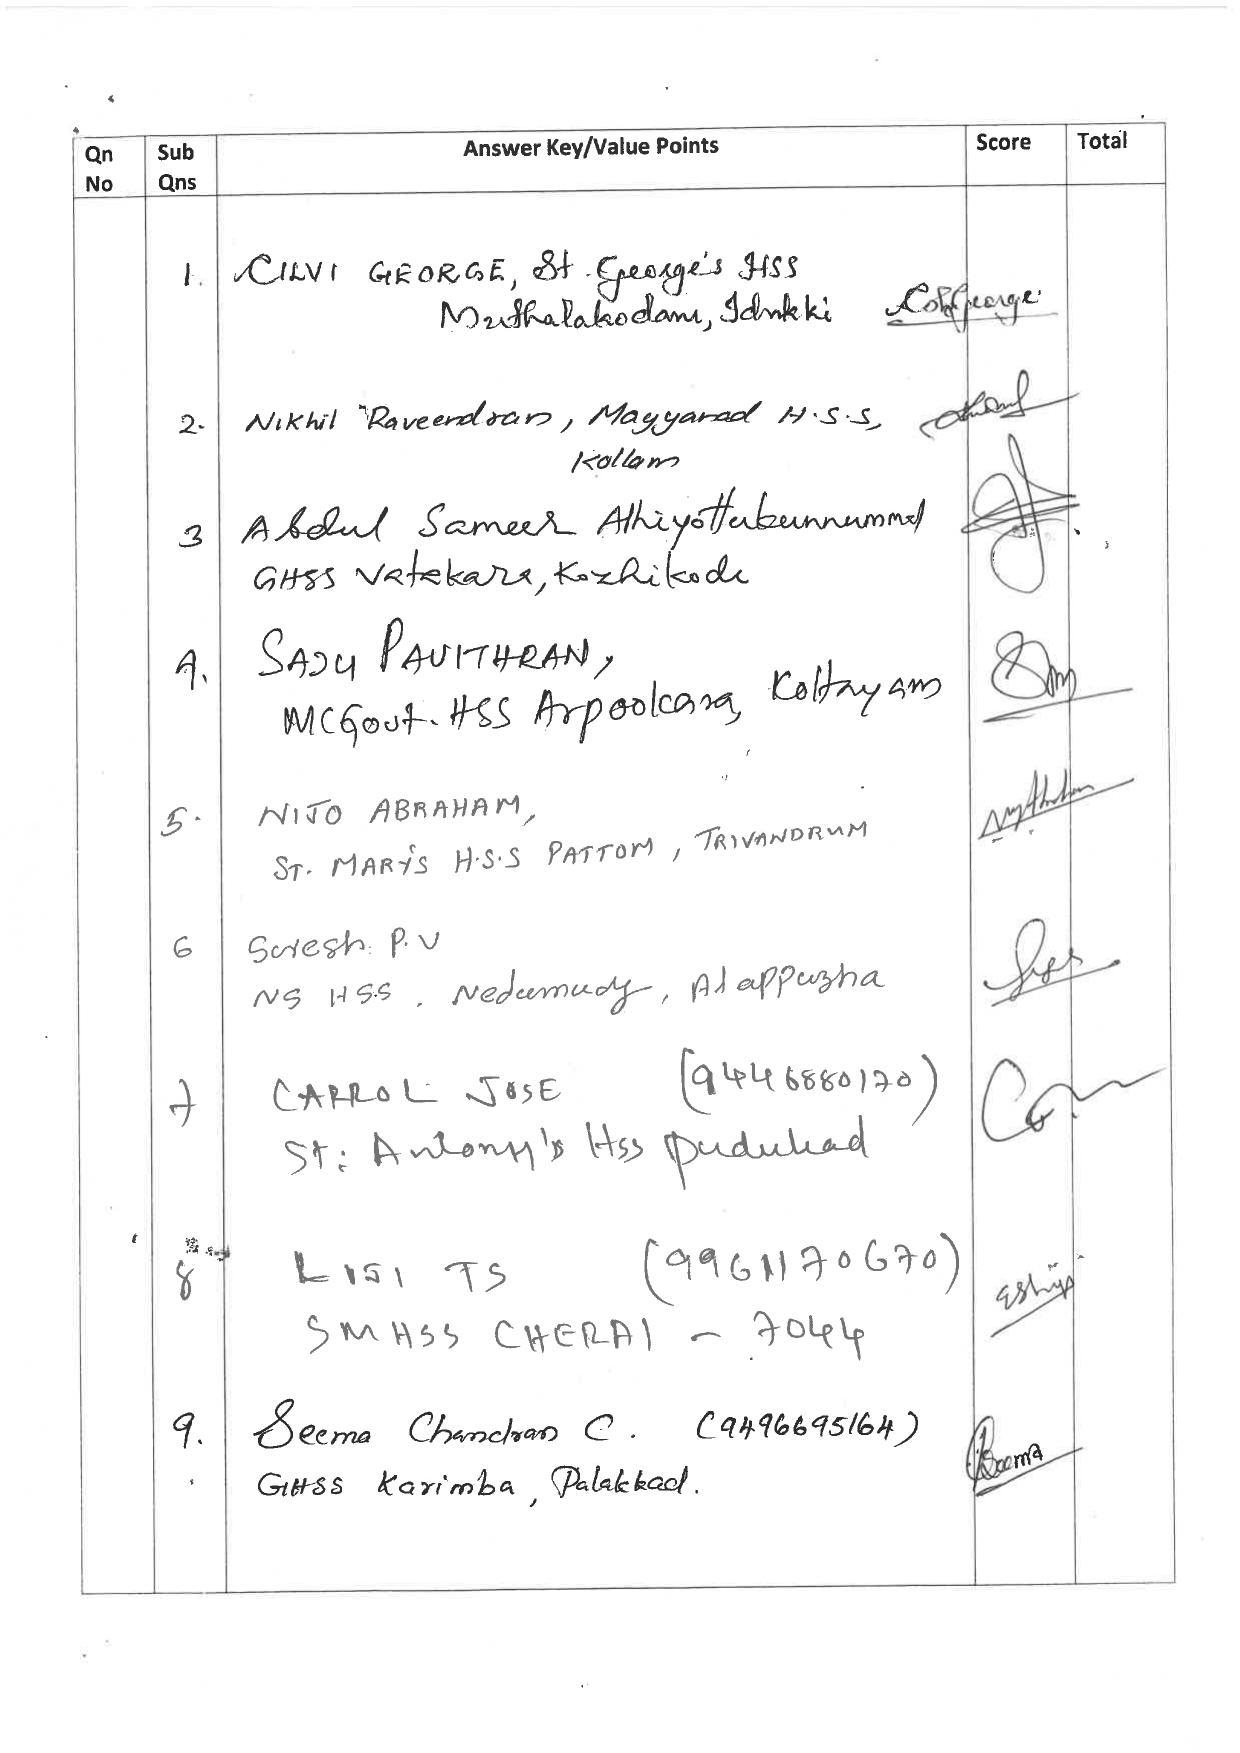 Qn No Sub Qns Answer Key/Value Points Score Total
1. CILVI GEORGE, St. George's HSS
Muthalakodam, Idukki
2. Nikhil Raveendran, Mayyanad H.S.S,
Kollam
3 Abdul Sameer Athiyottukunnummel
GHSS Vatakara, Kozhikode
4. SAJU PAVITHRAN,
MCGovt. HSS Arpookara, Kottayam
5. NIJO ABRAHAM,
ST. MARY'S H.S.S PATTOM, TRIVANDRUM
6 Suresh. P.V
NS HSS, Nedumudy, Alappuzha
7 CARROL JOSE (9446880170)
St: Antony's Hss pudukad
8 LISI TS (9961170670)
SMHSS CHERAI - 7044
9. Seema Chandran C. (9496695164)
GHSS Karimba, Palakkad.
Seema